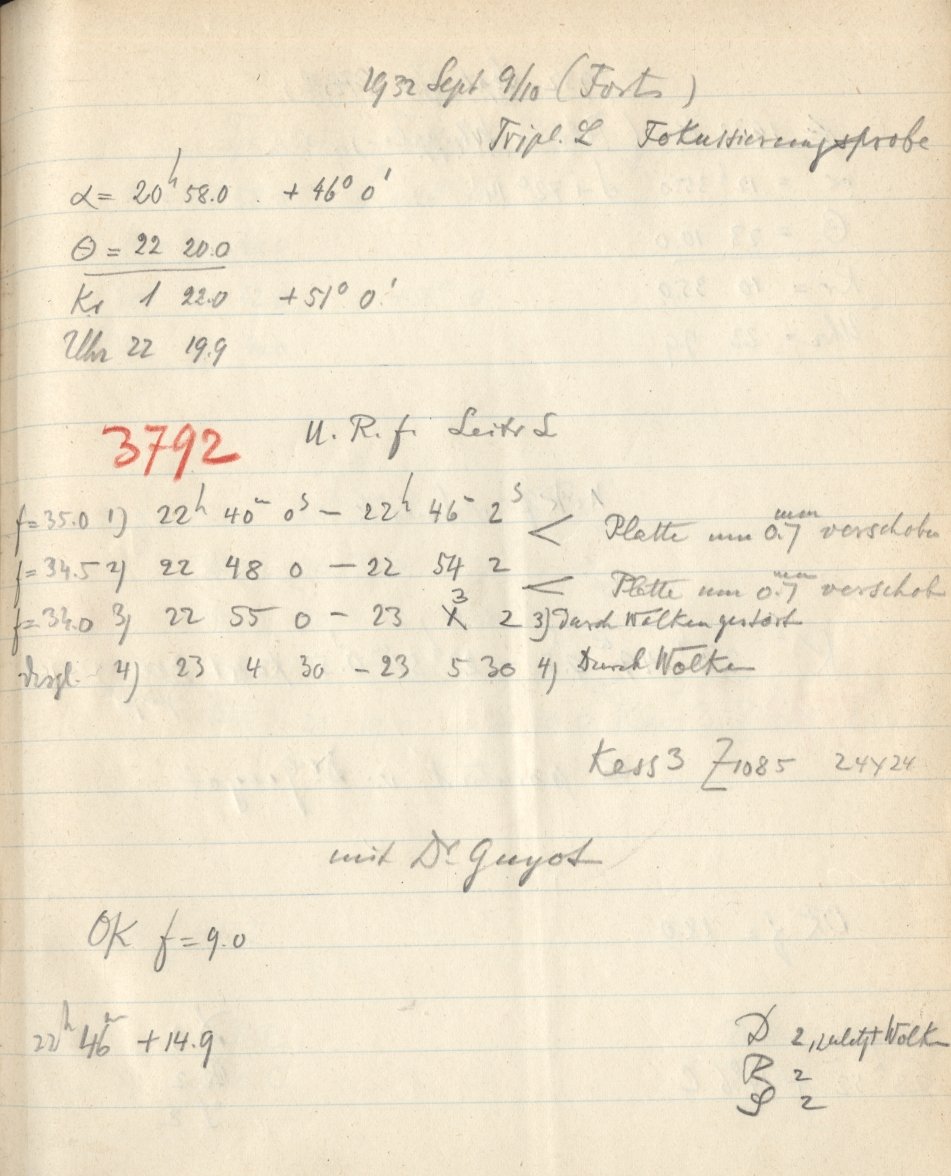 1932 Sept 9/10 (Forts)
Tripl. L Fokussierungsprobe
α = 20ʰ 58.0 + 46° 0'
Θ = 22 20.0
Kr 1 22.0 + 51° 0'
Uhr 22 19.9
3792 U. R. f. Leitr L
f=35.0 1) 22ʰ 40ᵐ 0ˢ – 22ʰ 46ᵐ 2ˢ < Platte um 0.7ᵐᵐ verschoben
f=34.5 2) 22 48 0 – 22 54 2 < Platte um 0.7ᵐᵐ verschob
f=34.0 3) 22 55 0 – 23 3 2 3) Durch Wolken gestört
Desgl. 4) 23 4 30 – 23 5 30 4) Durch Wolken
Kass 3 Z1085 24x24
mit Dr Guyot
OK f = 9.0
22ʰ 46ᵐ + 14.9
D 2, zuletzt Wolken
R 2
S 2